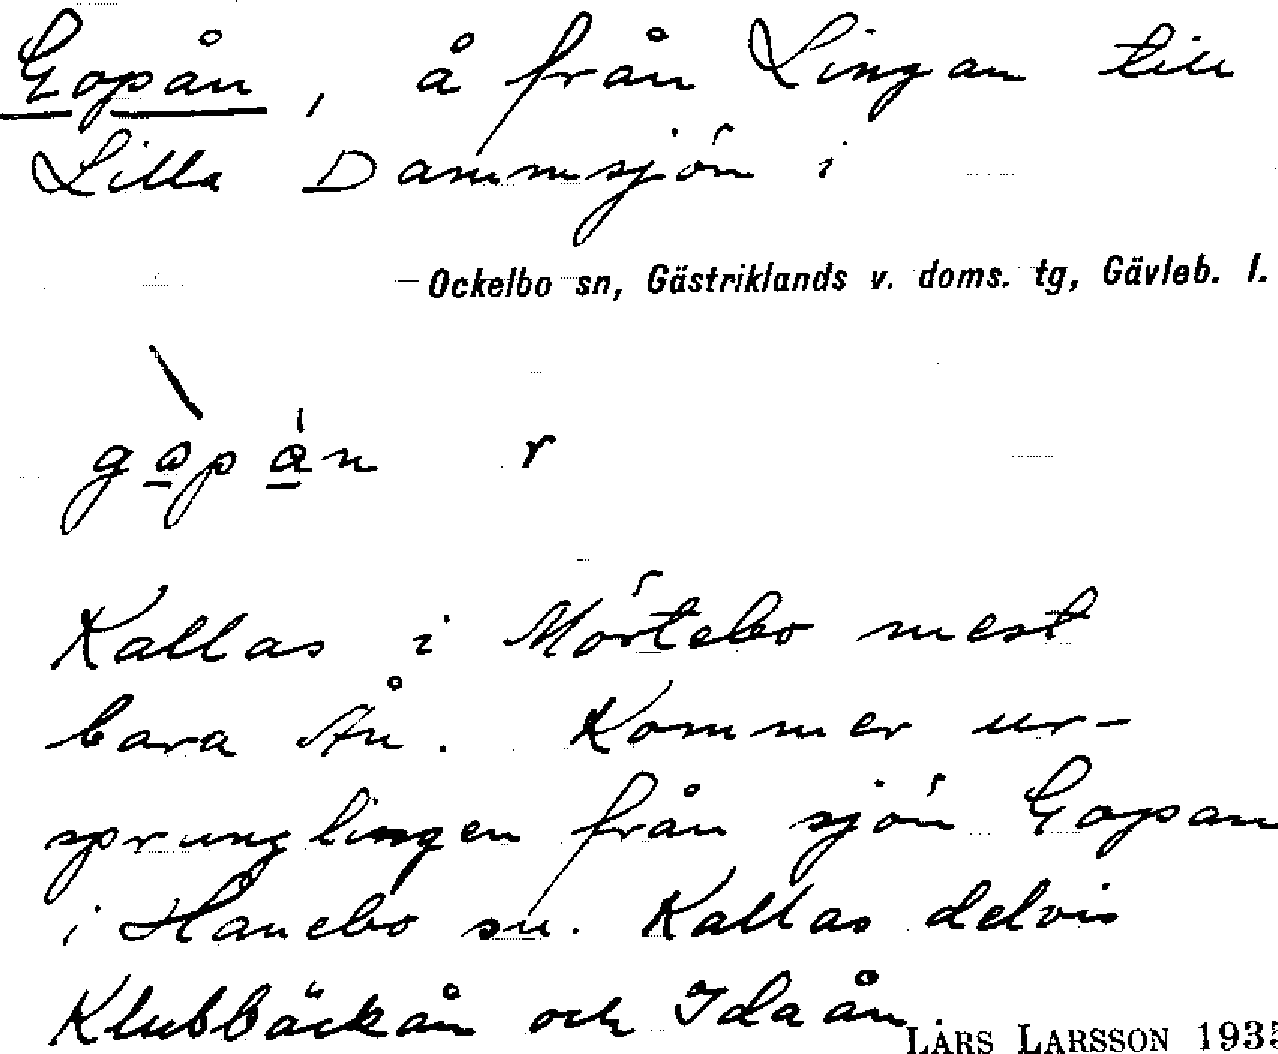 Gopån, å från Lingan till
Lilla Dammsjön i
Ockelbo sn, Gästriklands v. doms. tg, Gävleb. l.
gopån r
Kallas i Mörtebo mest
bara Ån. Kommer ur-
sprunglingen från sjön Gopan
i Hanebo sn. Kallas delvis
Klubbäckån och Idaån.
LARS LARSSON 1935